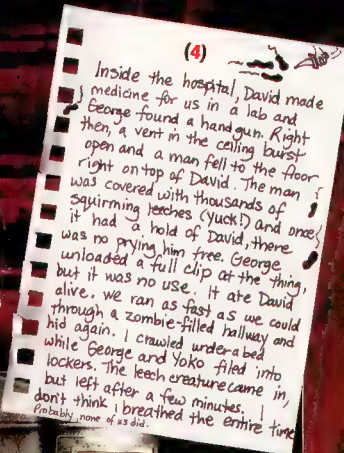 (4)
Inside the hospital, David made
medicine for us in a lab and
George found a handgun. Right
then, a vent in the ceiling burst
open and a man fell to the floor
right on top of David. The man
was covered with thousands of
squirming leeches (yuck!) and once
it had a hold of David, there
was no prying him free. George
unloaded a full clip at the thing,
but it was no use. It ate David
alive. We ran as fast as we could
through a zombie-filled hallway and
hid again. I crawled under a bed
while George and Yoko filed into
lockers. The leech creature came in,
but left after a few minutes. I
don't think i breathed the entire time
Probably none of us did.